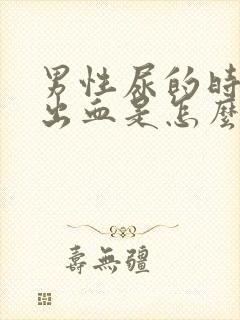 男性尿的時
出血是怎麼
壽無疆